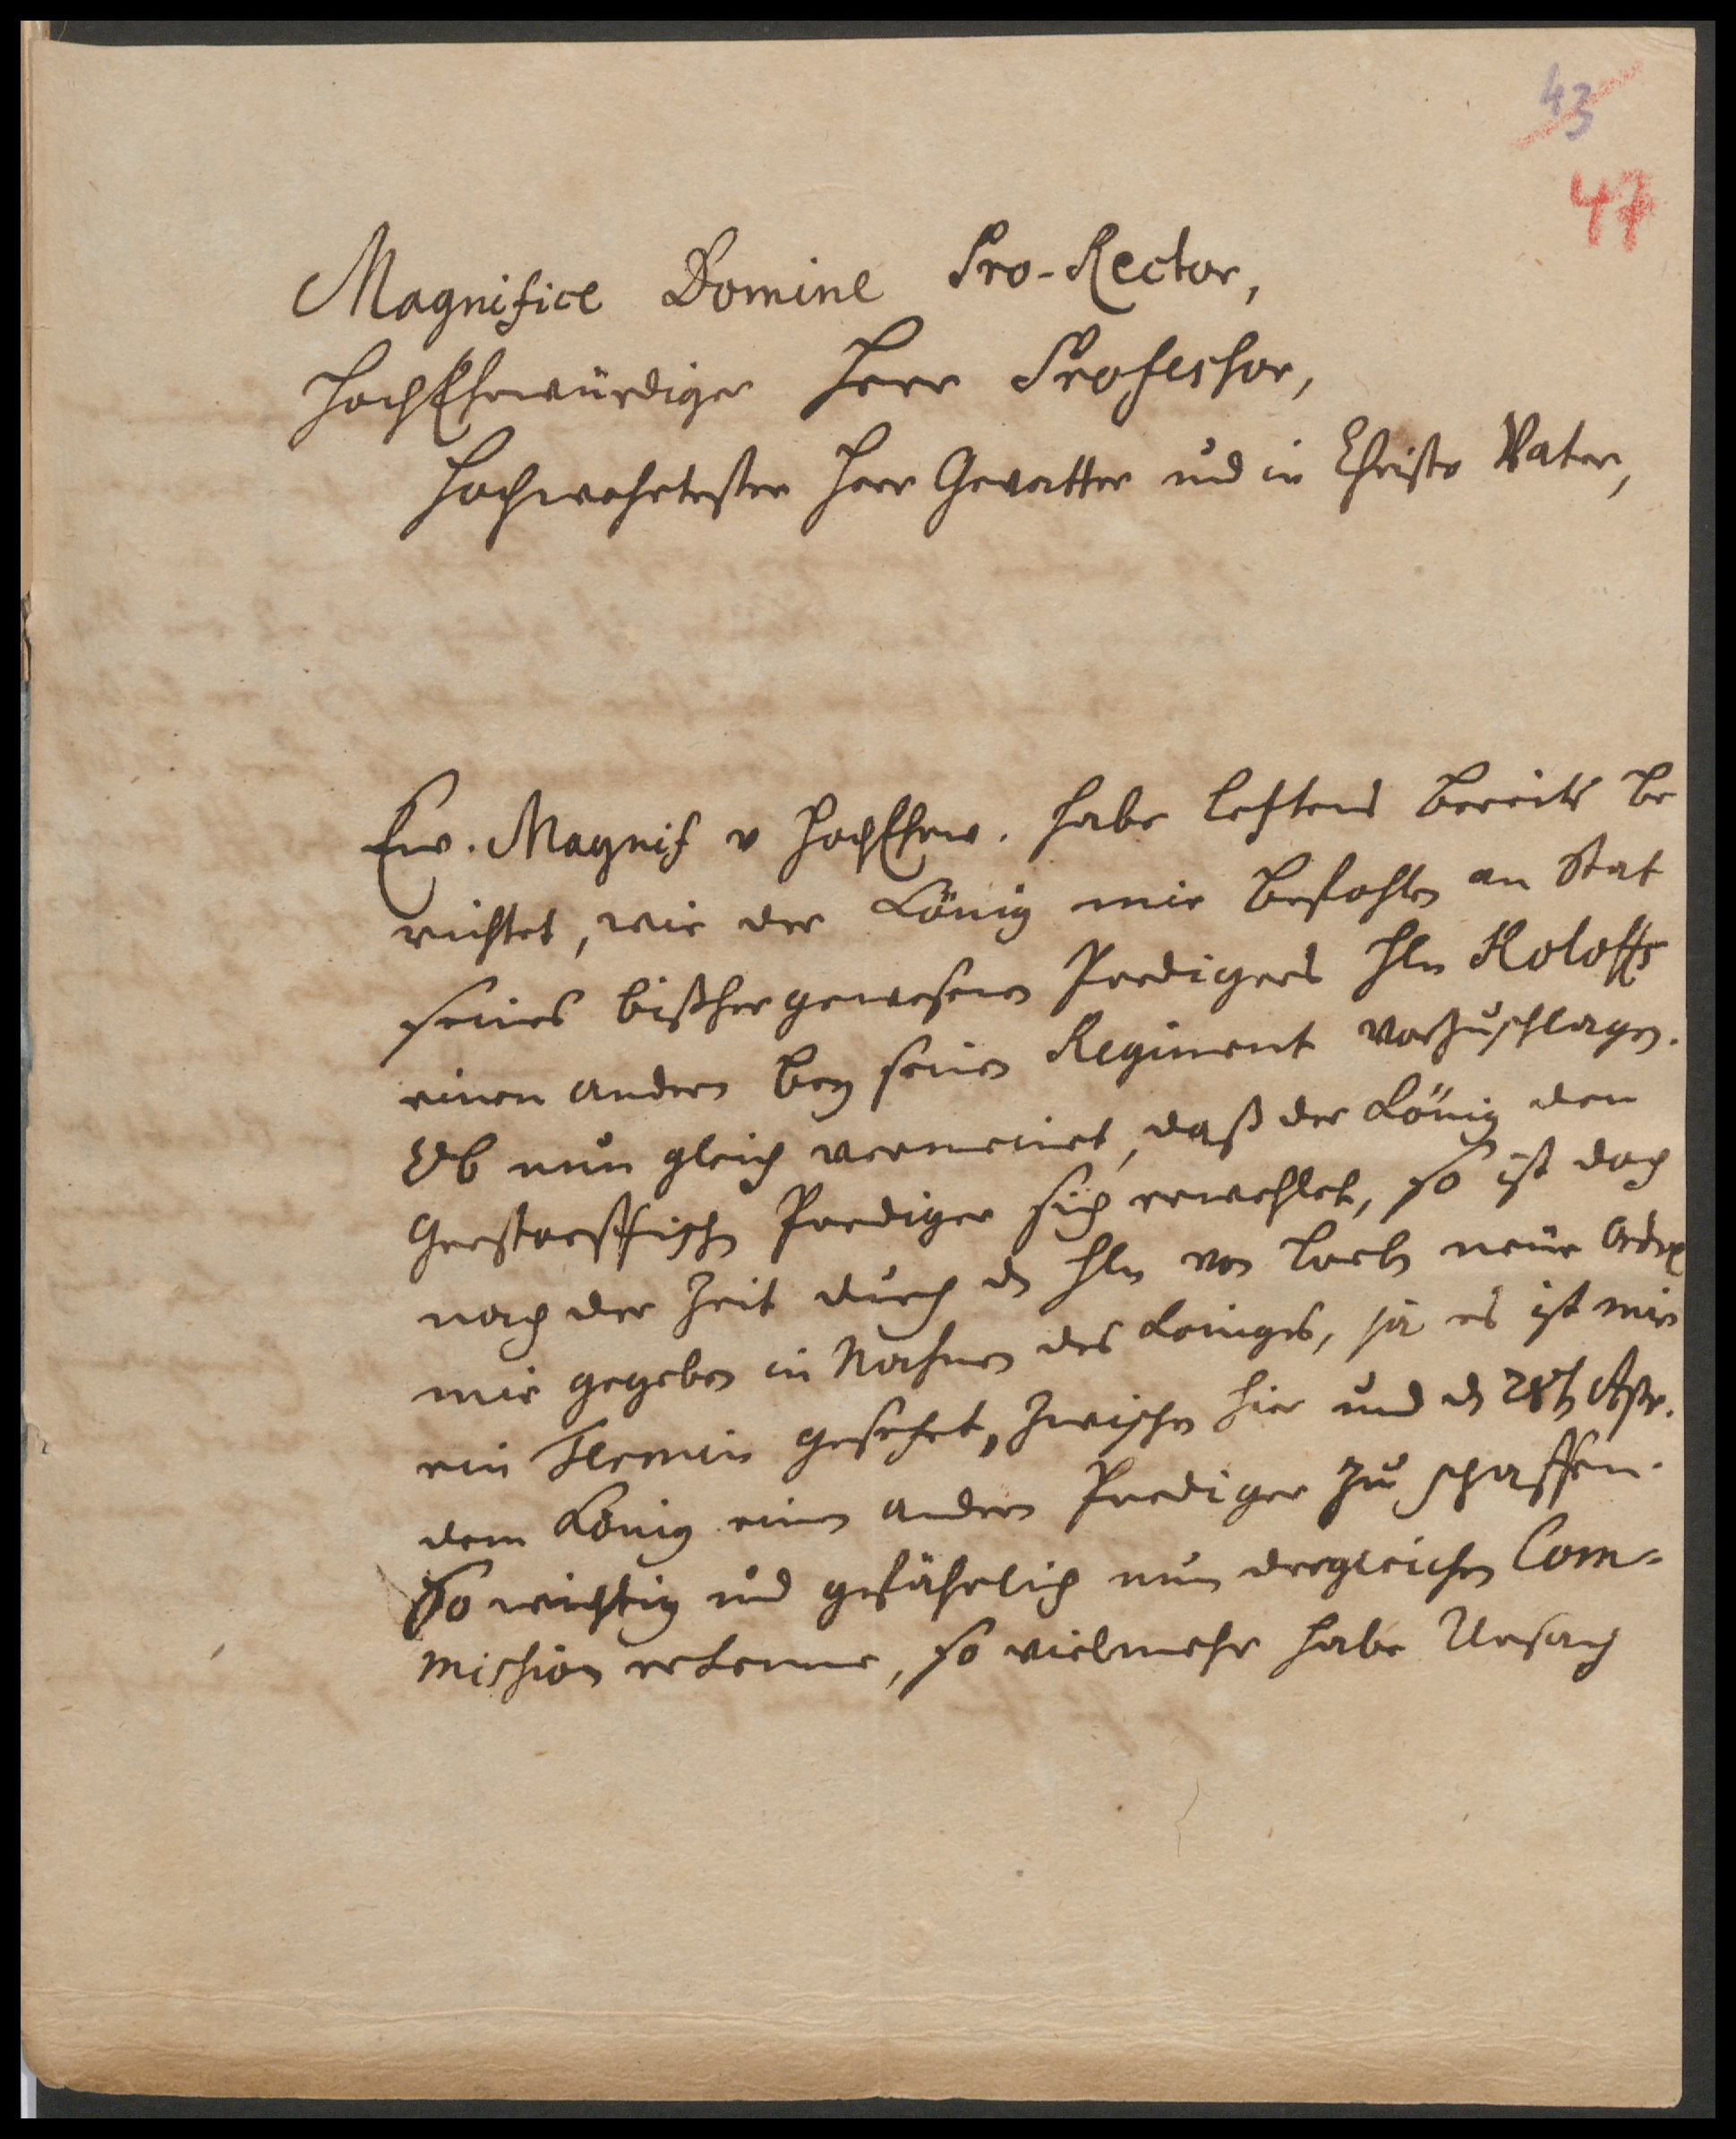 43
47
Magnifice Domine Pro-Rector,
HochEhrwürdiger Herr Professor,
Hochwehrtester Herr Gevatter und in Christo Vater,
Ew. Magnif v HochEhrw. habe letztens bereits be
richtet, wie der König mir befohlen an Stat
seines bißher gewesenen Predigers Hln Roloffs
einen andern bey seinen Regiment vorzuschlagen.
Ob nun gleich vermeinet, daß der König den
Prediger sich erwehlet, so ist doch
nach der Zeit durch d Hln von neue Ordre
mir gegeben in Nahmen des Königes, ja es ist mir
ein Termin gesetzet, zwischen hier und d 28t
dem König einen andern Prediger zu schaffen.
So wichtig und gefährlich nun dergleichen Com-
mission erkenne, so vielmehr habe Ursach